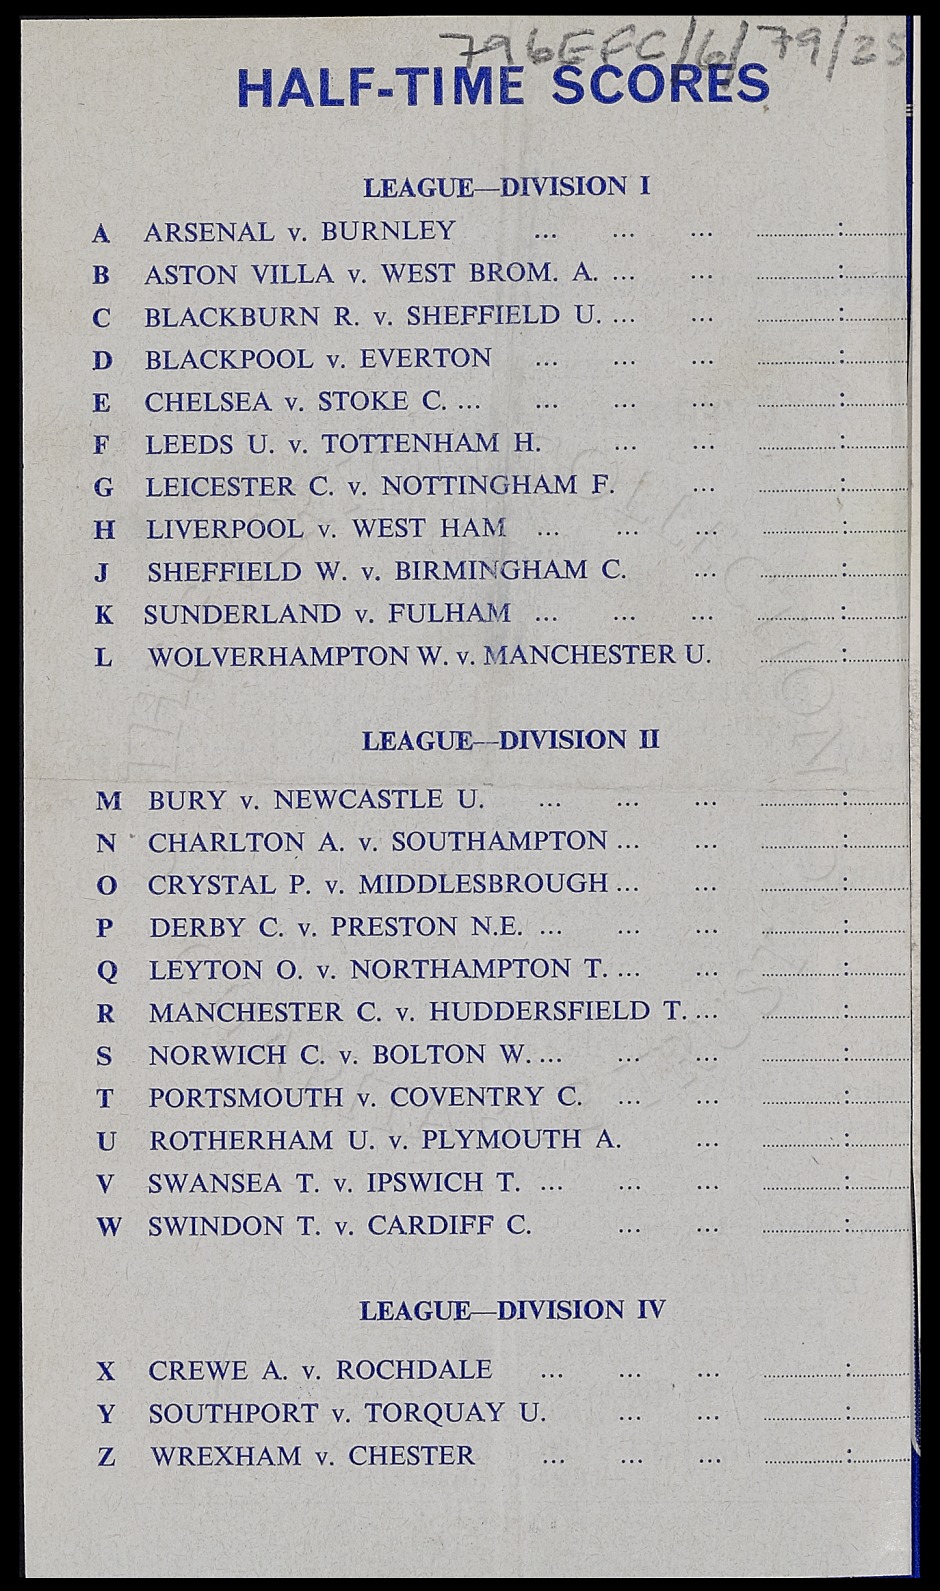 796EFC/6/79/25
HALF-TIME SCORES
LEAGUE—DIVISION I
A ARSENAL v. BURNLEY ... ... ... ............:............
B ASTON VILLA v. WEST BROM. A. ... ... ............:............
C BLACKBURN R. v. SHEFFIELD U. ... ... ............:............
D BLACKPOOL v. EVERTON ... ... ... ............:............
E CHELSEA v. STOKE C. ... ... ... ... ............:............
F LEEDS U. v. TOTTENHAM H. ... ... ............:............
G LEICESTER C. v. NOTTINGHAM F. ... ............:............
H LIVERPOOL v. WEST HAM ... ... ... ............:............
J SHEFFIELD W. v. BIRMINGHAM C. ... ............:............
K SUNDERLAND v. FULHAM ... ... ... ............:............
L WOLVERHAMPTON W. v. MANCHESTER U. ............:............
LEAGUE—DIVISION II
M BURY v. NEWCASTLE U. ... ... ... ............:............
N CHARLTON A. v. SOUTHAMPTON ... ... ............:............
O CRYSTAL P. v. MIDDLESBROUGH ... ... ............:............
P DERBY C. v. PRESTON N.E. ... ... ... ............:............
Q LEYTON O. v. NORTHAMPTON T. ... ... ............:............
R MANCHESTER C. v. HUDDERSFIELD T. ... ............:............
S NORWICH C. v. BOLTON W. ... ... ... ............:............
T PORTSMOUTH v. COVENTRY C. ... ... ............:............
U ROTHERHAM U. v. PLYMOUTH A. ... ............:............
V SWANSEA T. v. IPSWICH T. ... ... ... ............:............
W SWINDON T. v. CARDIFF C. ... ... ............:............
LEAGUE—DIVISION IV
X CREWE A. v. ROCHDALE ... ... ... ............:............
Y SOUTHPORT v. TORQUAY U. ... ... ............:............
Z WREXHAM v. CHESTER ... ... ... ............:............